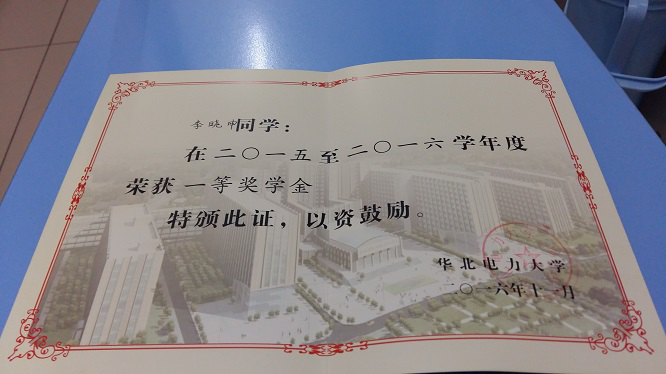 李晓 同学：
在二〇一五至二〇一六学年度
荣获 一等奖学金
特颁此证，以资鼓励。
华北电力大学
二〇一六年十一月